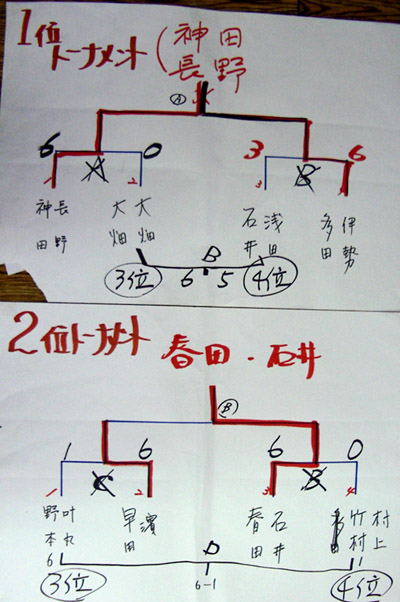 1位
トーナメント (神田
長野
Ⓐ
6 A 0 3 B 6
1 2 3
神田 長野 大畑 大畑 石井 浅田 多田 伊勢
B
3位 6 5 4位
2位トーナメント 春田・石井
Ⓑ
1 6 6 0
1 C 2 3 B 4
野本 叶丸 早田 濱 春田 石井 竹村 村上
6 D 1
3位 6-1 4位